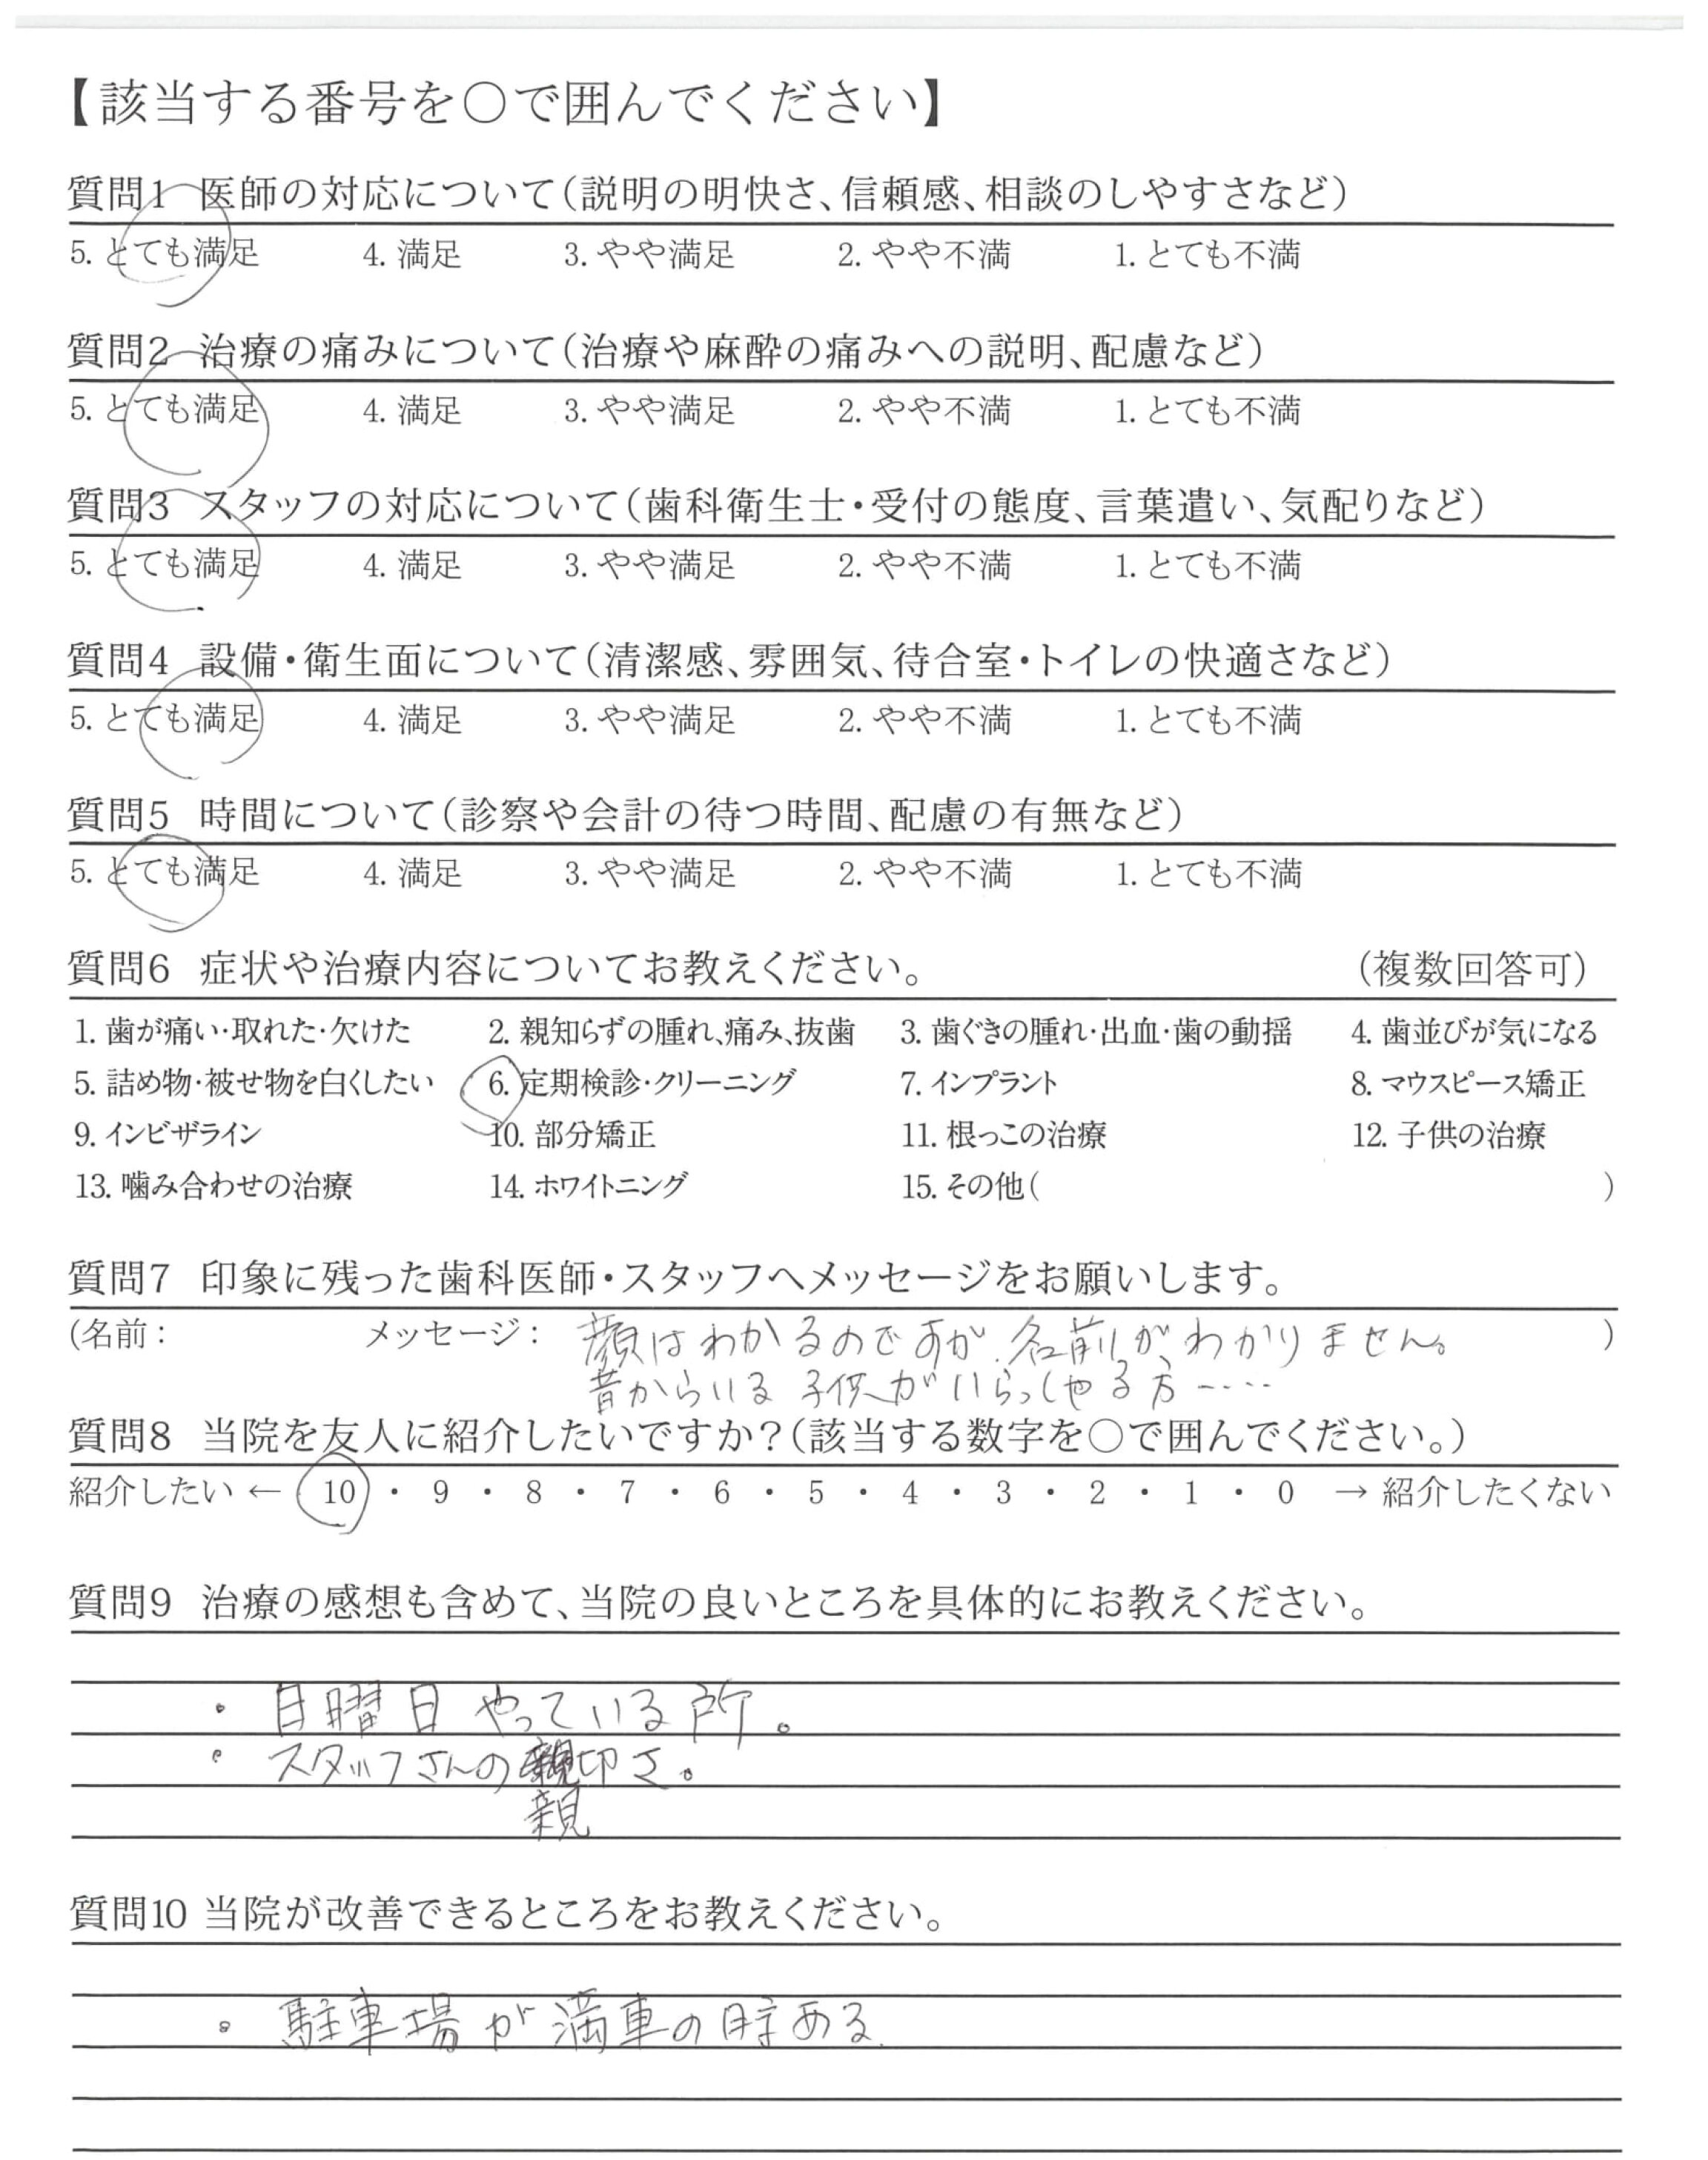 【該当する番号を〇で囲んでください】
質問1 医師の対応について(説明の明快さ、信頼感、相談のしやすさなど)
5. とても満足 4. 満足 3. やや満足 2. やや不満 1. とても不満
質問2 治療の痛みについて(治療や麻酔の痛みへの説明、配慮など)
5. とても満足 4. 満足 3. やや満足 2. やや不満 1. とても不満
質問3 スタッフの対応について(歯科衛生士・受付の態度、言葉遣い、気配りなど)
5. とても満足 4. 満足 3. やや満足 2. やや不満 1. とても不満
質問4 設備・衛生面について(清潔感、雰囲気、待合室・トイレの快適さなど)
5. とても満足 4. 満足 3. やや満足 2. やや不満 1. とても不満
質問5 時間について(診察や会計の待つ時間、配慮の有無など)
5. とても満足 4. 満足 3. やや満足 2. やや不満 1. とても不満
質問6 症状や治療内容についてお教えください。 (複数回答可)
1. 歯が痛い・取れた・欠けた 2. 親知らずの腫れ、痛み、抜歯 3. 歯ぐきの腫れ・出血・歯の動揺 4. 歯並びが気になる
5. 詰め物・被せ物を白くしたい 6. 定期検診・クリーニング 7. インプラント 8. マウスピース矯正
9. インビザライン 10. 部分矯正 11. 根っこの治療 12. 子供の治療
13. 噛み合わせの治療 14. ホワイトニング 15. その他( )
質問7 印象に残った歯科医師・スタッフへメッセージをお願いします。
(名前: メッセージ: 顔はわかるのですが、名前がわかりません。 )
昔からいる 子供がいらっしゃる方……
質問8 当院を友人に紹介したいですか?(該当する数字を〇で囲んでください。)
紹介したい ← 10 ・ 9 ・ 8 ・ 7 ・ 6 ・ 5 ・ 4 ・ 3 ・ 2 ・ 1 ・ 0 → 紹介したくない
質問9 治療の感想も含めて、当院の良いところを具体的にお教えください。
・ 日曜日やっている所。
・ スタッフさんの親切さ。
親
質問10 当院が改善できるところをお教えください。
・ 駐車場が満車の時ある.